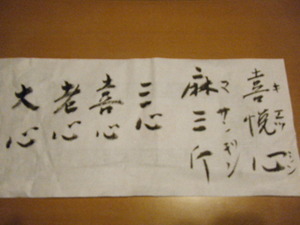 喜悦心
キエツシン
麻三斤
マサンギン
三心
喜心
老心
大心